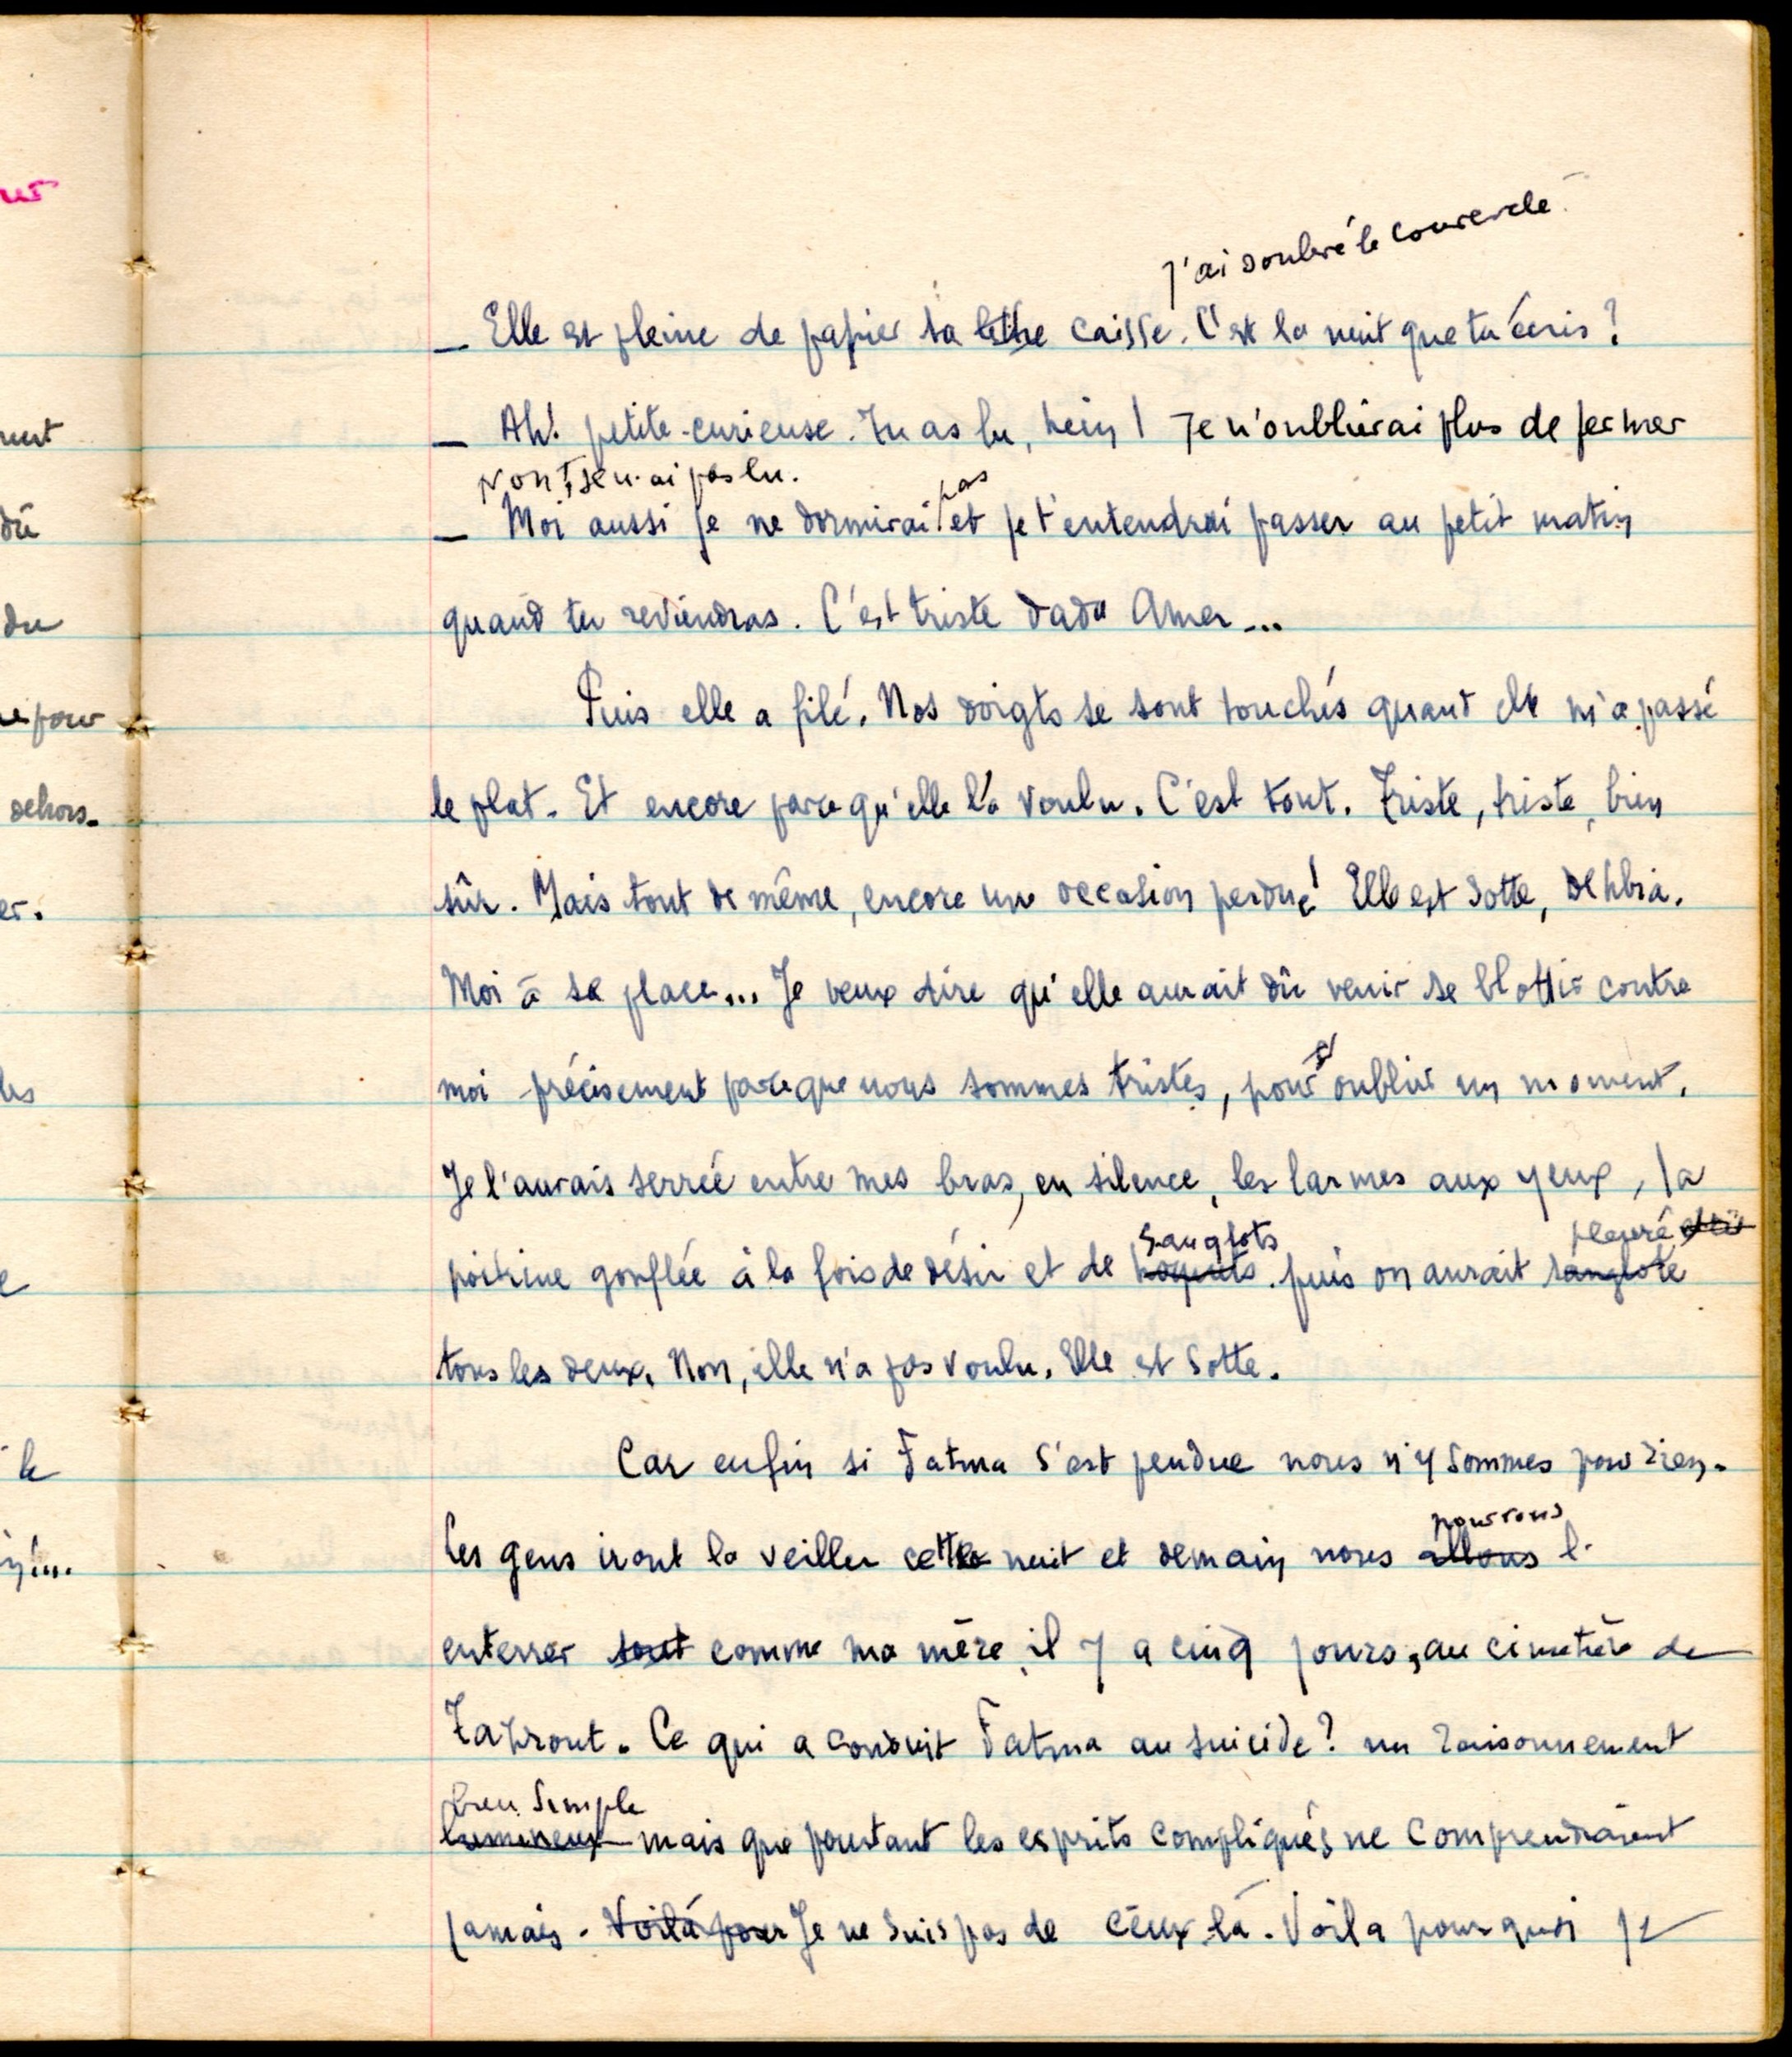 j'ai soulevé le couvercle
_ Elle est pleine de papier ta lettre caisse. C'est la nuit que tu écris ?
_ Ah! petite curieuse. Tu as lu, hein ! Je n'oublierai plus de fermer
Non, je n'ai pas lu.
pas
_ Moi aussi je ne dormirai et je t'entendrai passer au petit matin
quand tu reviendras. C'est triste dada Amer...
Puis elle a filé. Nos doigts se sont touchés quand elle m'a passé
le plat. Et encore parce qu'elle l'a voulu. C'est tout. Triste, triste, bien
sûr. Mais tout de même, encore une occasion perdue! Elle est sotte, Dehbia.
Moi à sa place... Je veux dire qu'elle aurait dû venir se blottir contre
moi précisement parce que nous sommes tristes, pour oublier un moment.
Je l'aurais serrée entre mes bras, en silence, les larmes aux yeux, la
sanglots pleuré
poitrine gonflée à la fois de désir et de hoquets. puis on aurait sangloté
tous les deux. Non, elle n'a pas voulu. Elle est sotte.
Car enfin si Fatma s'est pendue nous n'y sommes pour rien.
pourrons
Les gens iront la veiller cette nuit et demain nous allons l'
enterrer tout comme ma mère, il y a cinq jours, au cimetière de
Tazrout. Ce qui a conduit Fatma au suicide ? un raisonnement
bien simple
lumineux mais que pourtant les esprits compliqués ne comprendraient
jamais. Voilà pour Je ne suis pas de ceux là. Voila pourquoi je
nt
dû
du
pour
dehors.
er.
le